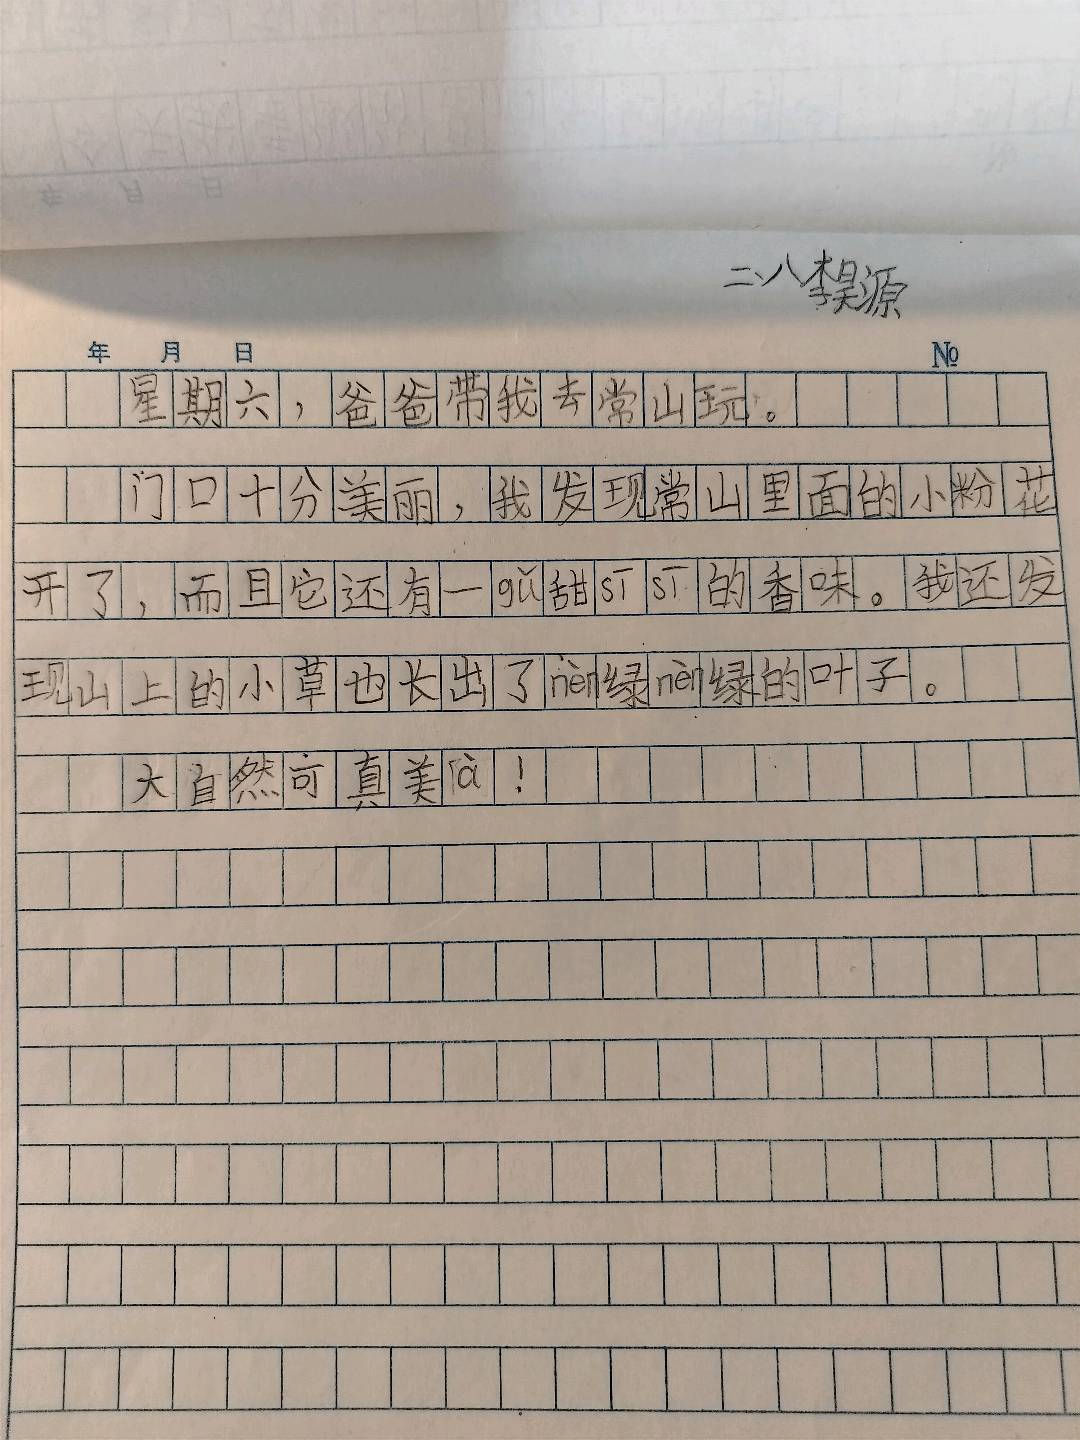 二、八李昊源
年 月 日 №
星期六，爸爸带我去常山玩。
门口十分美丽，我发现常山里面的小粉花
开了，而且它还有一gǔ甜sī sī的香味。我还发
现山上的小草也长出了nèn绿nèn绿的叶子。
大自然可真美là！